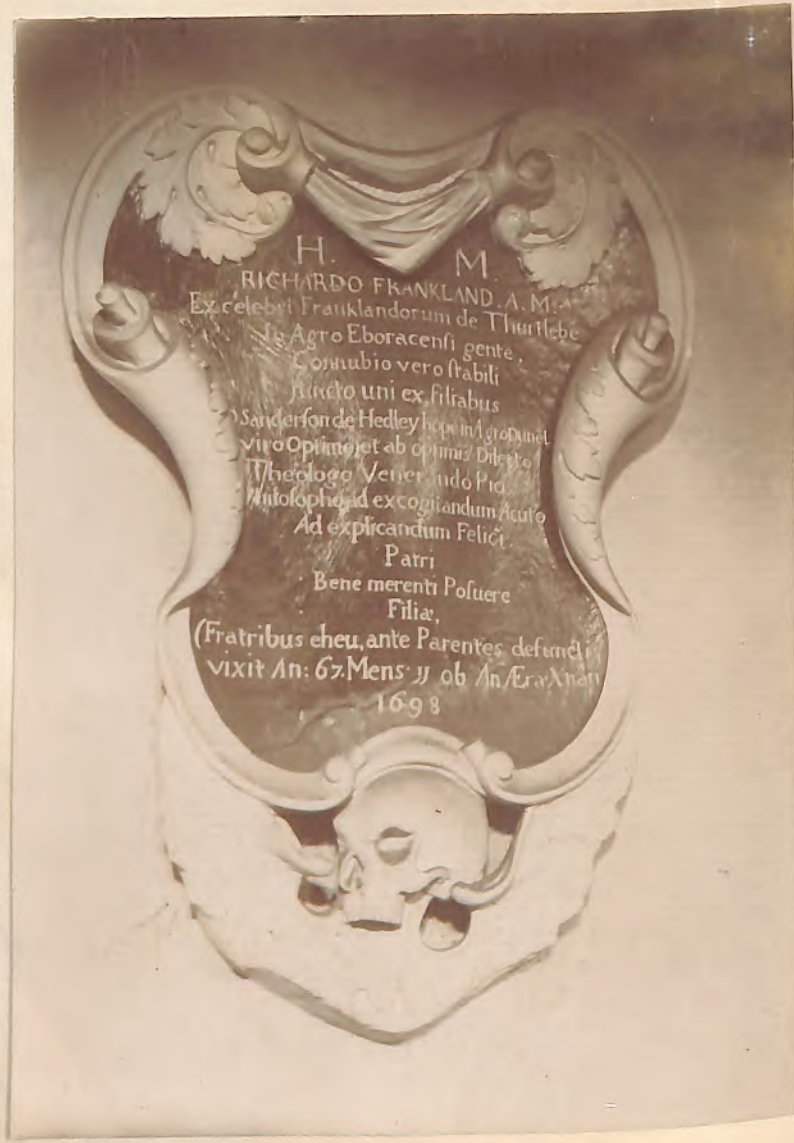 H. M.
RICHARDO FRANKLAND. A. M.
Ex celebri Franklandorum de Thurtlebe
In Agro Eboracenſi gente,
Connubio vero ſtabili
juncto uni ex filiabus
Sanderſon de Hedley hope in Agro Dunel
viro Optimo et ab optimis Dilecto
Theologo Venerando Pio
Philoſopho ad excogitandum Acuto
Ad explicandum Felici.
Patri
Bene merenti Poſuere
Filiæ,
(Fratribus eheu, ante Parentes defuncti
vixit An: 67. Mens: JJ ob An Æræ Xnæ
1698